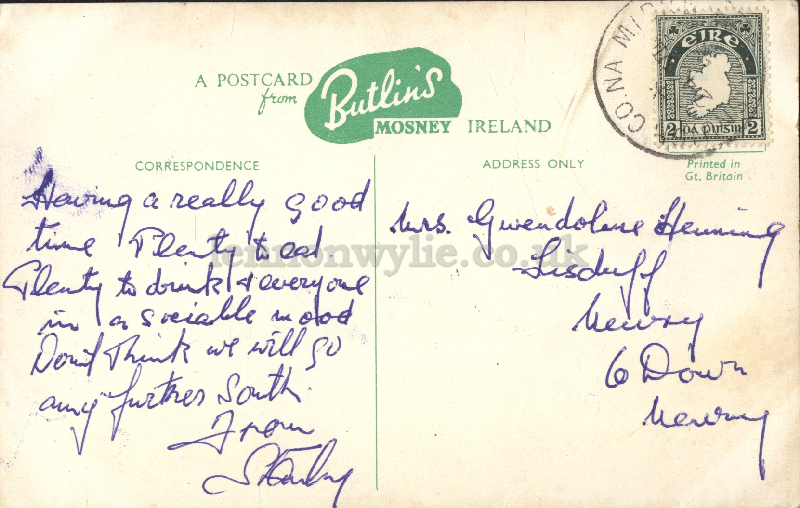 A POSTCARD
from
Butlin's
MOSNEY IRELAND
CO NA MI
éIRe
2 Dá pinsin 2
CORRESPONDENCE
ADDRESS ONLY
Printed in
Gt. Britain
Having a really good
time Plenty to eat
Plenty to drink & everyone
in a sociable mood
Don't Think we will go
any further South.
From
Mrs. Gwendolene Henning
Lisduff
Newry
Co Down
Newry
lennonwylie.co.uk